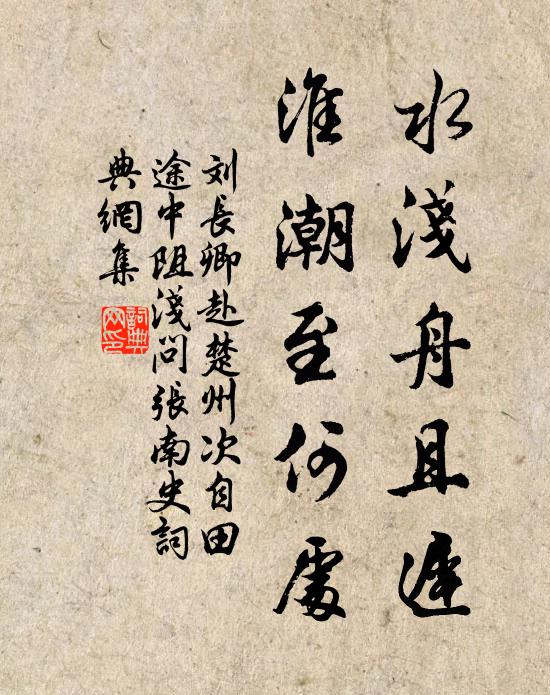 水淺舟且遲
淮潮至何處
刘長卿赴楚州次自田
途中阻淺问張南史詞
典網集
詞典
网印